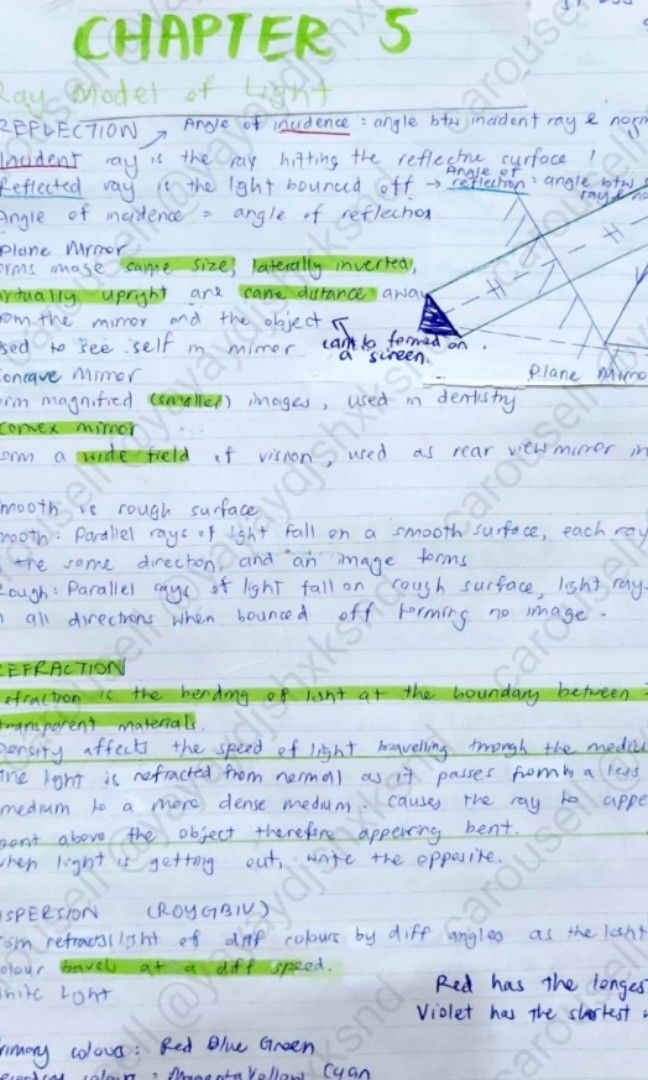 CHAPTER 5
Ray Model of Light
REFLECTION → Angle of incidence : angle btw incident ray & norm
Incident ray is the ray hitting the reflective surface
Reflected ray is the light bounced off → Angle of reflection : angle btw
ray & no
Angle of incidence = angle of reflection
Plane Mirror
orms image same size, laterally inverted,
irtually upright and same distance away
rom the mirror and the object
can't be formed on
a screen.
sed to see self in mirror
Plane Mirro
Concave Mirror
orm magnified (smaller) images, used in dentistry
convex mirror
orm a wide field of vision, used as rear view mirror in
mooth vs rough surface
mooth : Parallel rays of light fall on a smooth surface, each ray
the same direction, and an image forms
Rough : Parallel rays of light fall on rough surface, light ray
n all directions when bounced off forming no image.
REFRACTION
efraction is the bending of light at the boundary between
transparent materials.
Density affects the speed of light travelling through the mediu
The light is refracted from normal as it passes from a less
medium to a more dense medium. causes the ray to appe
above the object therefore appearing bent.
when light is getting out, write the opposite.
ISPERSION (ROYGBIV)
ism refracts light of diff colours by diff angles as the light
olour travel at a diff speed.
white Light
Red has the longes
Violet has the shortest
rimary colours : Red Blue Green
colours : Magenta Yellow Cyan
carousell @yayaydjshxksnd